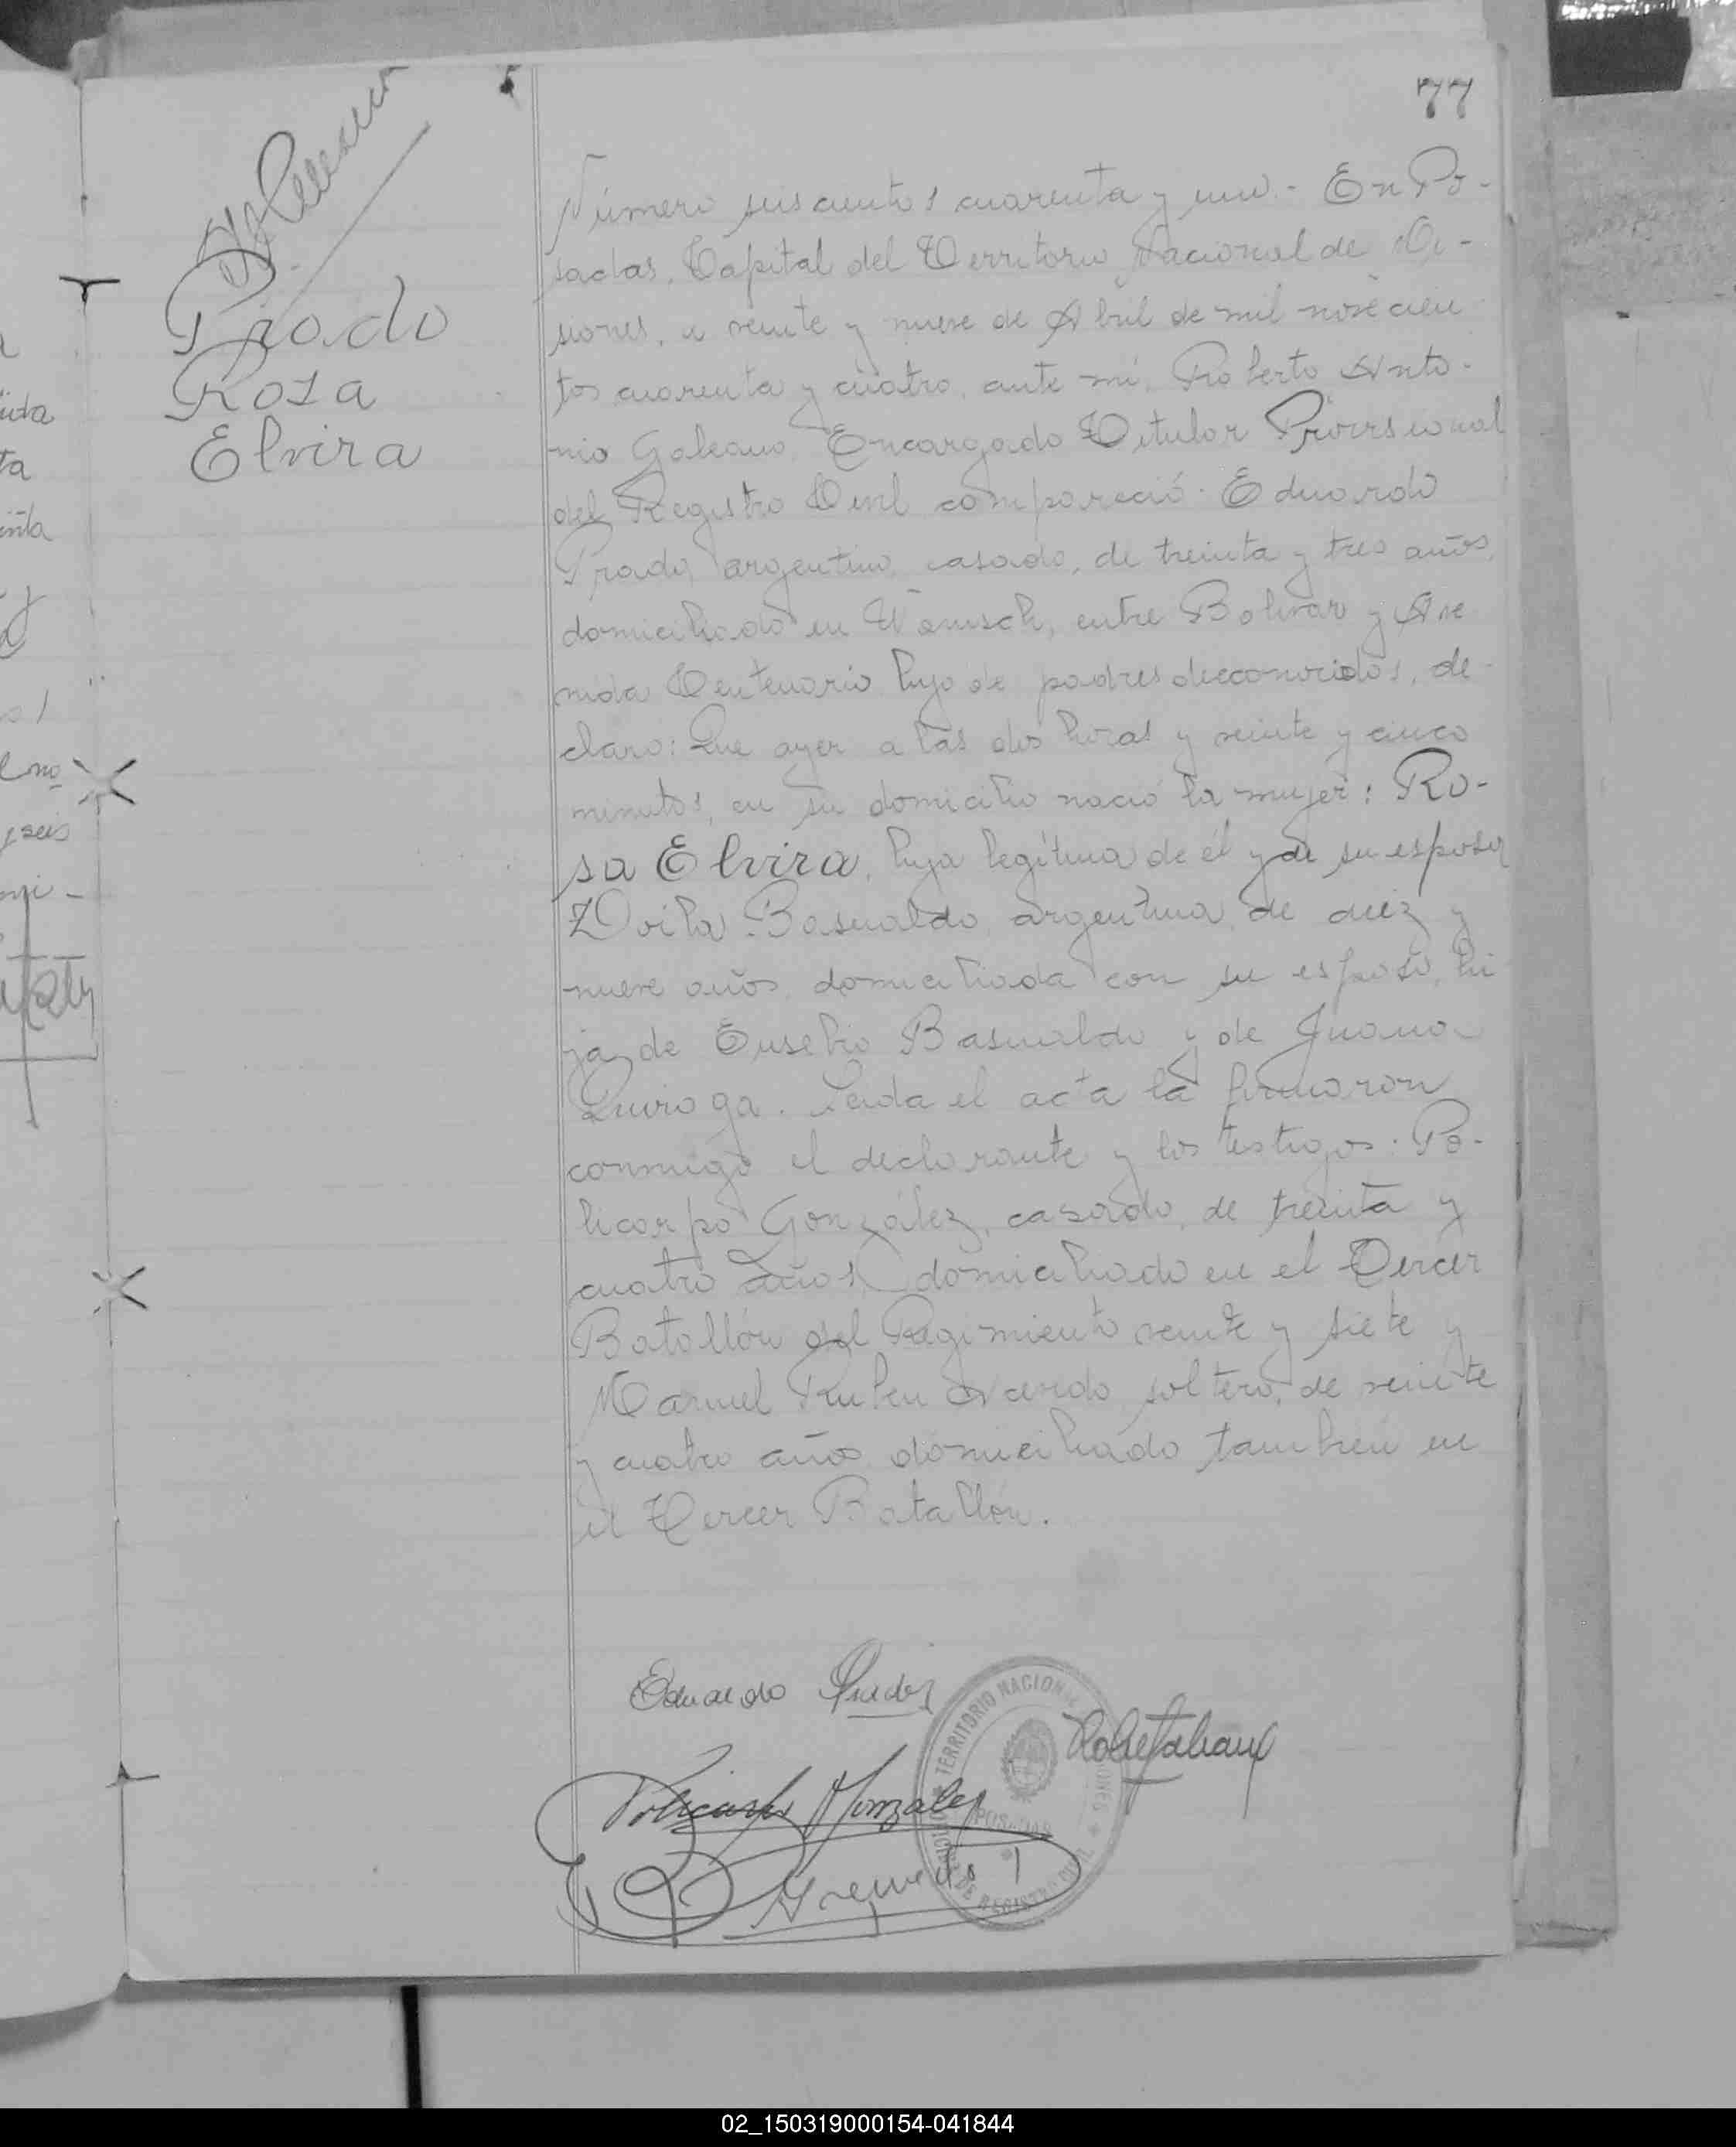 77
Prado
Rosa
Elvira
Número seiscientos cuarenta y uno.- En Po-
sadas, Capital del Territorio Nacional de Mi-
siones, a veinte y nueve de Abril de mil novecien
tos cuarenta y cuatro, ante mí, Roberto Anto-
nio Galeano, Encargado Titular Provisional
del Registro Civil compareció: Eduardo
Prado, argentino, casado, de treinta y tres años,
domiciliado en Wanisch, entre Bolívar y Ave
nida Centenario hijo de padres desconocidos, de-
claro: Que ayer a las dos horas y veinte y cinco
minutos, en su domicilio nació la mujer: Ro-
sa Elvira, hija legítima de él y de su esposa
Zoila Basualdo, argentina, de diez y
nueve años, domiciliada con su esposo, hi
ja de Eusebio Basualdo y de Juana
Quiroga. Leida el acta la firmaron
conmigo el declarante y los testigos: Po-
licarpo González, casado, de treinta y
cuatro años, domiciliado en el Tercer
Batallón del Regimiento veinte y siete y
Manuel Ruben soltero, de veinte
y cuatro años, domiciliado tambien en
el Tercer Batallón.
Eduardo Prado
TERRITORIO NACIONAL
POSADAS
OFICINA DE REGISTRO CIVIL
Policarpo Gonzalez
02_150319000154-041844